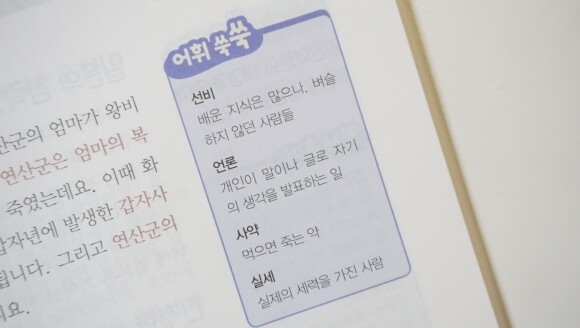 산군의 엄마가 왕비
연산군은 엄마의 복
죽였는데요. 이때 화
갑자년에 발생한 갑자사
됩니다. 그리고 연산군의
어휘 쑥쑥
선비
배운 지식은 많으나, 벼슬
하지 않던 사람들
언론
개인이 말이나 글로 자기
의 생각을 발표하는 일
사약
먹으면 죽는 약
실세
실제의 세력을 가진 사람